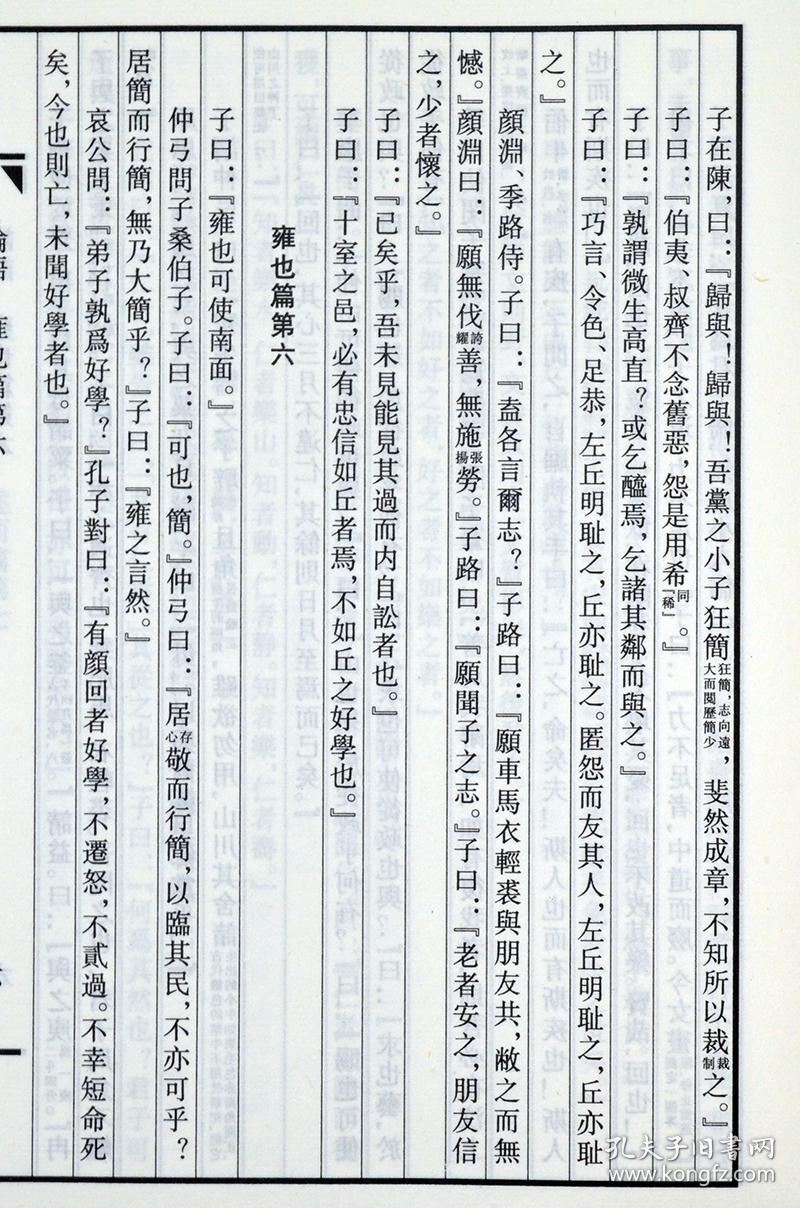 子在陳，曰：『歸與！歸與！吾黨之小子狂簡狂簡，志向遠大而閲歷簡少，斐然成章，不知所以裁裁制之。』
子曰：『伯夷、叔齊不念舊惡，怨是用希同『稀』。』
子曰：『孰謂微生高直？或乞醯焉，乞諸其鄰而與之。』
子曰：『巧言、令色、足恭，左丘明耻之，丘亦耻之。匿怨而友其人，左丘明耻之，丘亦耻
之。』
顔淵、季路侍。子曰：『盍各言爾志？』子路曰：『願車馬衣輕裘與朋友共，敝之而無
憾。』顔淵曰：『願無伐誇耀善，無施張揚勞。』子路曰：『願聞子之志。』子曰：『老者安之，朋友信
之，少者懷之。』
子曰：『已矣乎，吾未見能見其過而内自訟者也。』
子曰：『十室之邑，必有忠信如丘者焉，不如丘之好學也。』
雍也篇第六
子曰：『雍也可使南面。』
仲弓問子桑伯子。子曰：『可也，簡。』仲弓曰：『居存心敬而行簡，以臨其民，不亦可乎？
居簡而行簡，無乃大簡乎？』子曰：『雍之言然。』
哀公問：『弟子孰爲好學？』孔子對曰：『有顔回者好學，不遷怒，不貳過。不幸短命死
矣，今也則亡，未聞好學者也。』
孔夫子旧書网
www.kongfz.com